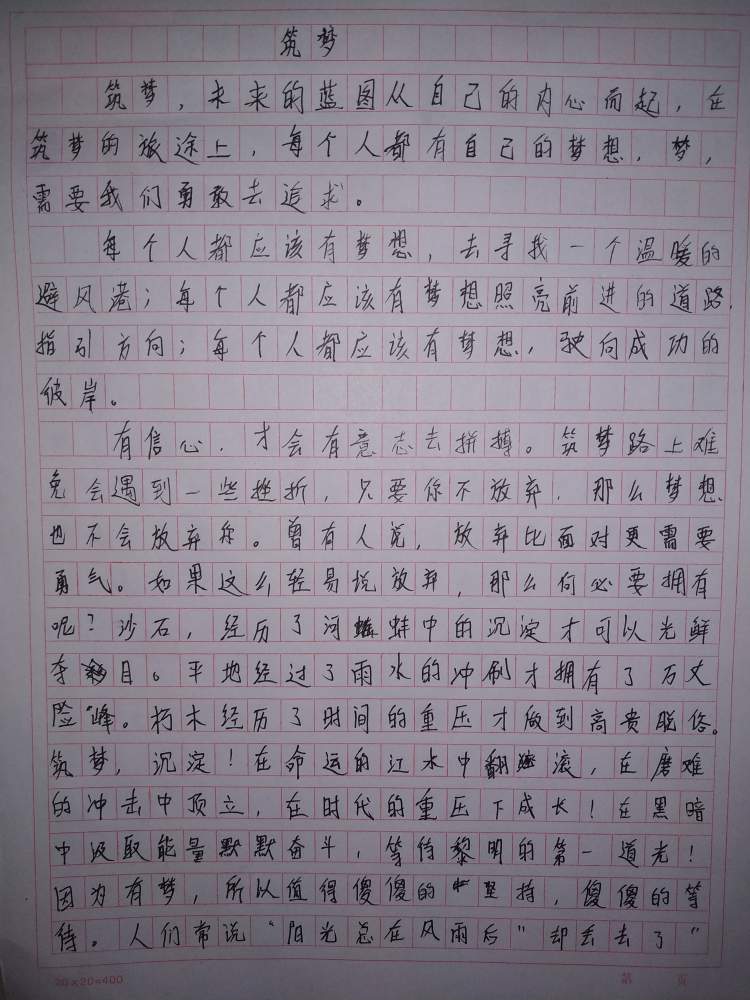 筑梦
筑梦，未来的蓝图从自己的内心而起，在
筑梦的旅途上，每个人都有自己的梦想，梦，
需要我们勇敢去追求。
每个人都应该有梦想，去寻找一个温暖的
避风港；每个人都应该有梦想照亮前进的道路，
指引方向；每个人都应该有梦想，驶向成功的
彼岸。
有信心，才会有意志去拼搏。筑梦路上难
免会遇到一些挫折，只要你不放弃，那么梦想
也不会放弃你。曾有人说，放弃比面对更需要
勇气。如果这么轻易说放弃，那么何必要拥有
呢？沙石，经历了河蚌中的沉淀才可以光鲜
夺目。平地经过了雨水的冲刷才拥有了万丈
险峰。朽木经历了时间的重压才做到高贵脱俗。
筑梦，沉淀！在命运的江水中翻滚，在磨难
的冲击中顶立，在时代的重压下成长！在黑暗
中汲取能量默默奋斗，等待黎明的第一道光！
因为有梦，所以值得傻傻的坚持，傻傻的等
待。人们常说“阳光总在风雨后”却丢去了“
20×20=400
第 页